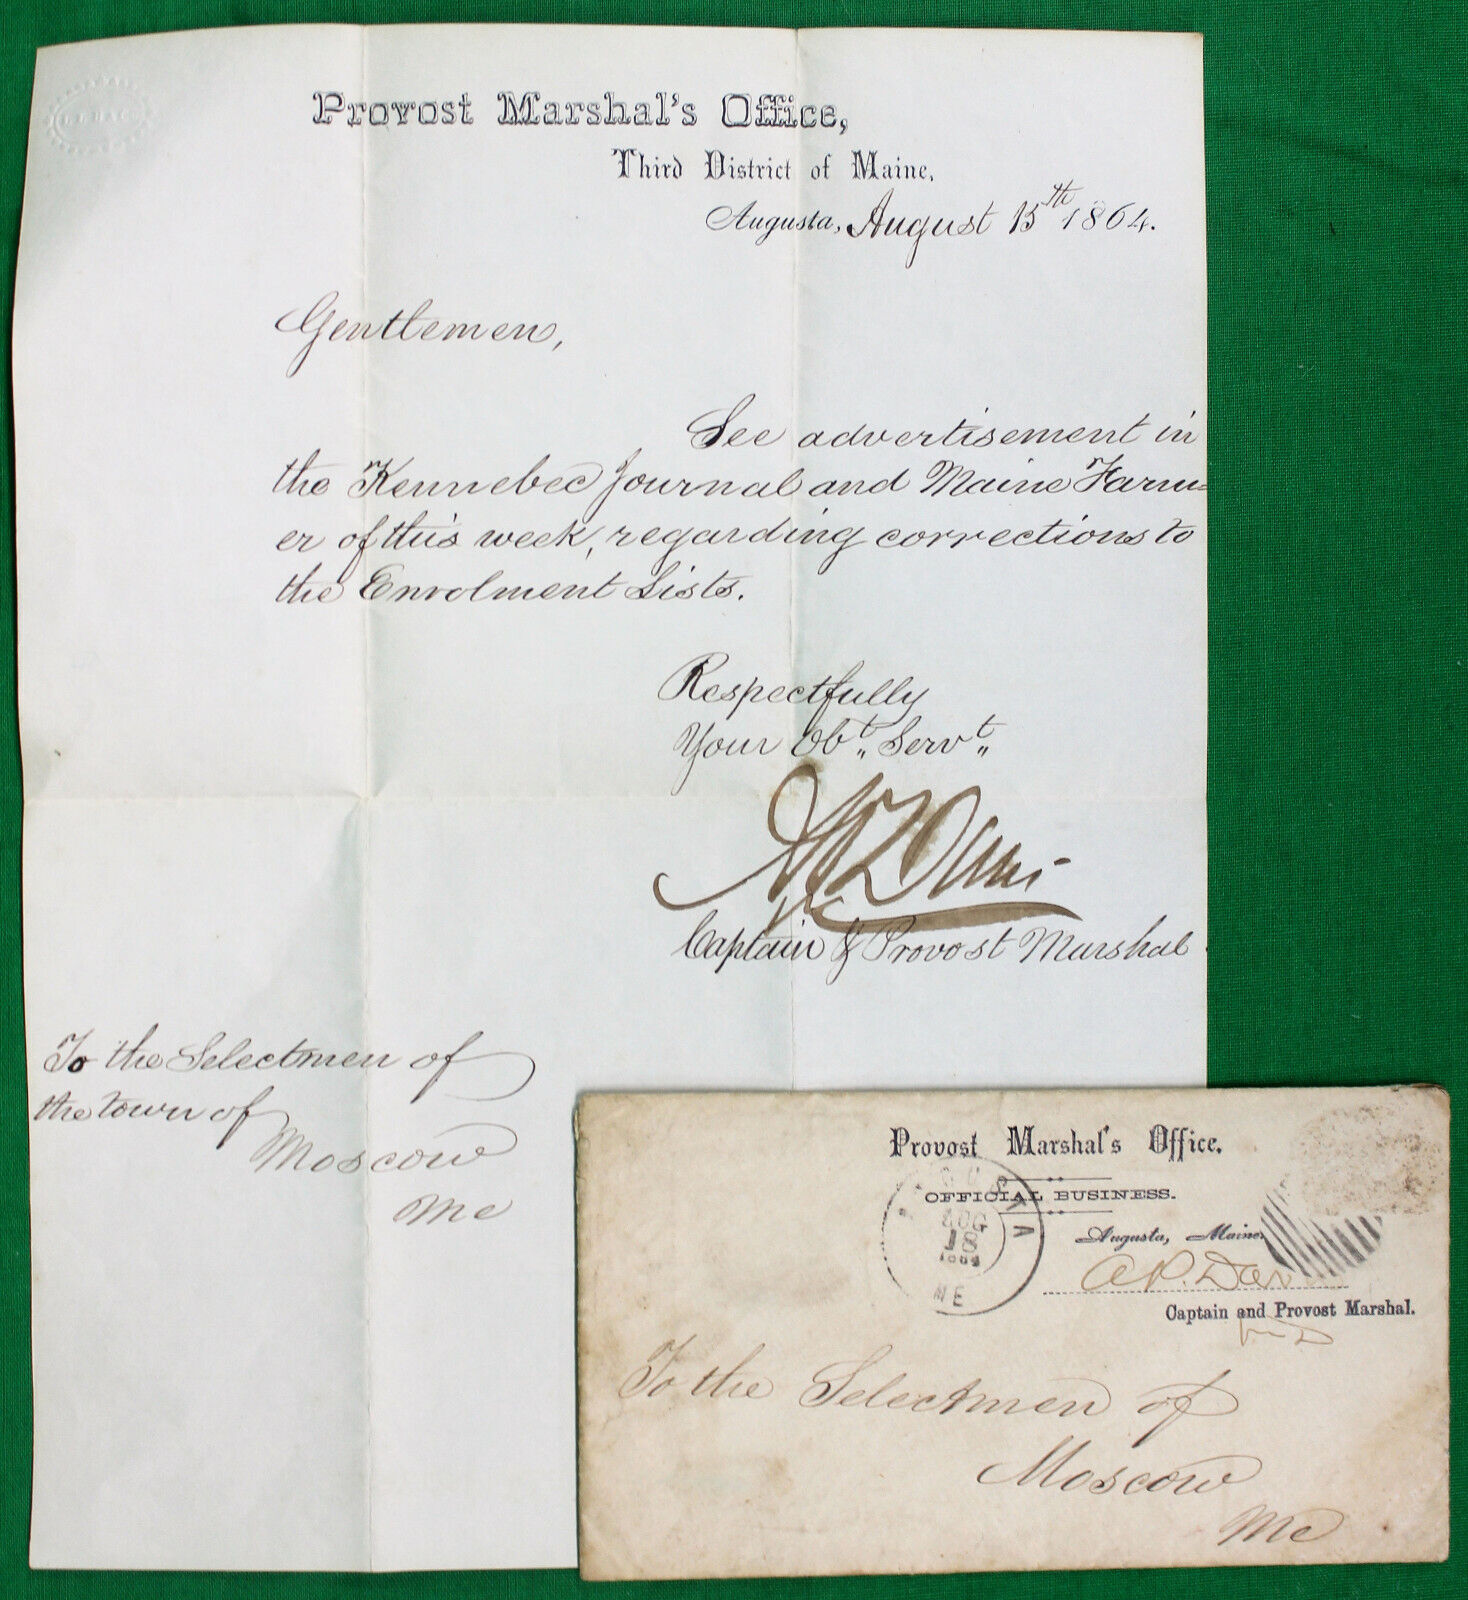 Provost Marshal's Office,
Third District of Maine,
Augusta, August 15th 1864.
Gentlemen,
See advertisement in
the Kennebec Journal and Maine Farm=
er of this week, regarding corrections to
the Enrolment Lists.
Respectfully
Your Obt,, Servt,,
A P Davis
Captain & Provost Marshal
To the Selectmen of
the town of
Moscow
Me
Provost Marshal's Office.
OFFICIAL BUSINESS.
AUG
18
ME
Augusta, Maine.
A.P. Davis
Captain and Provost Marshal.
To the Selectmen of
Moscow
Me